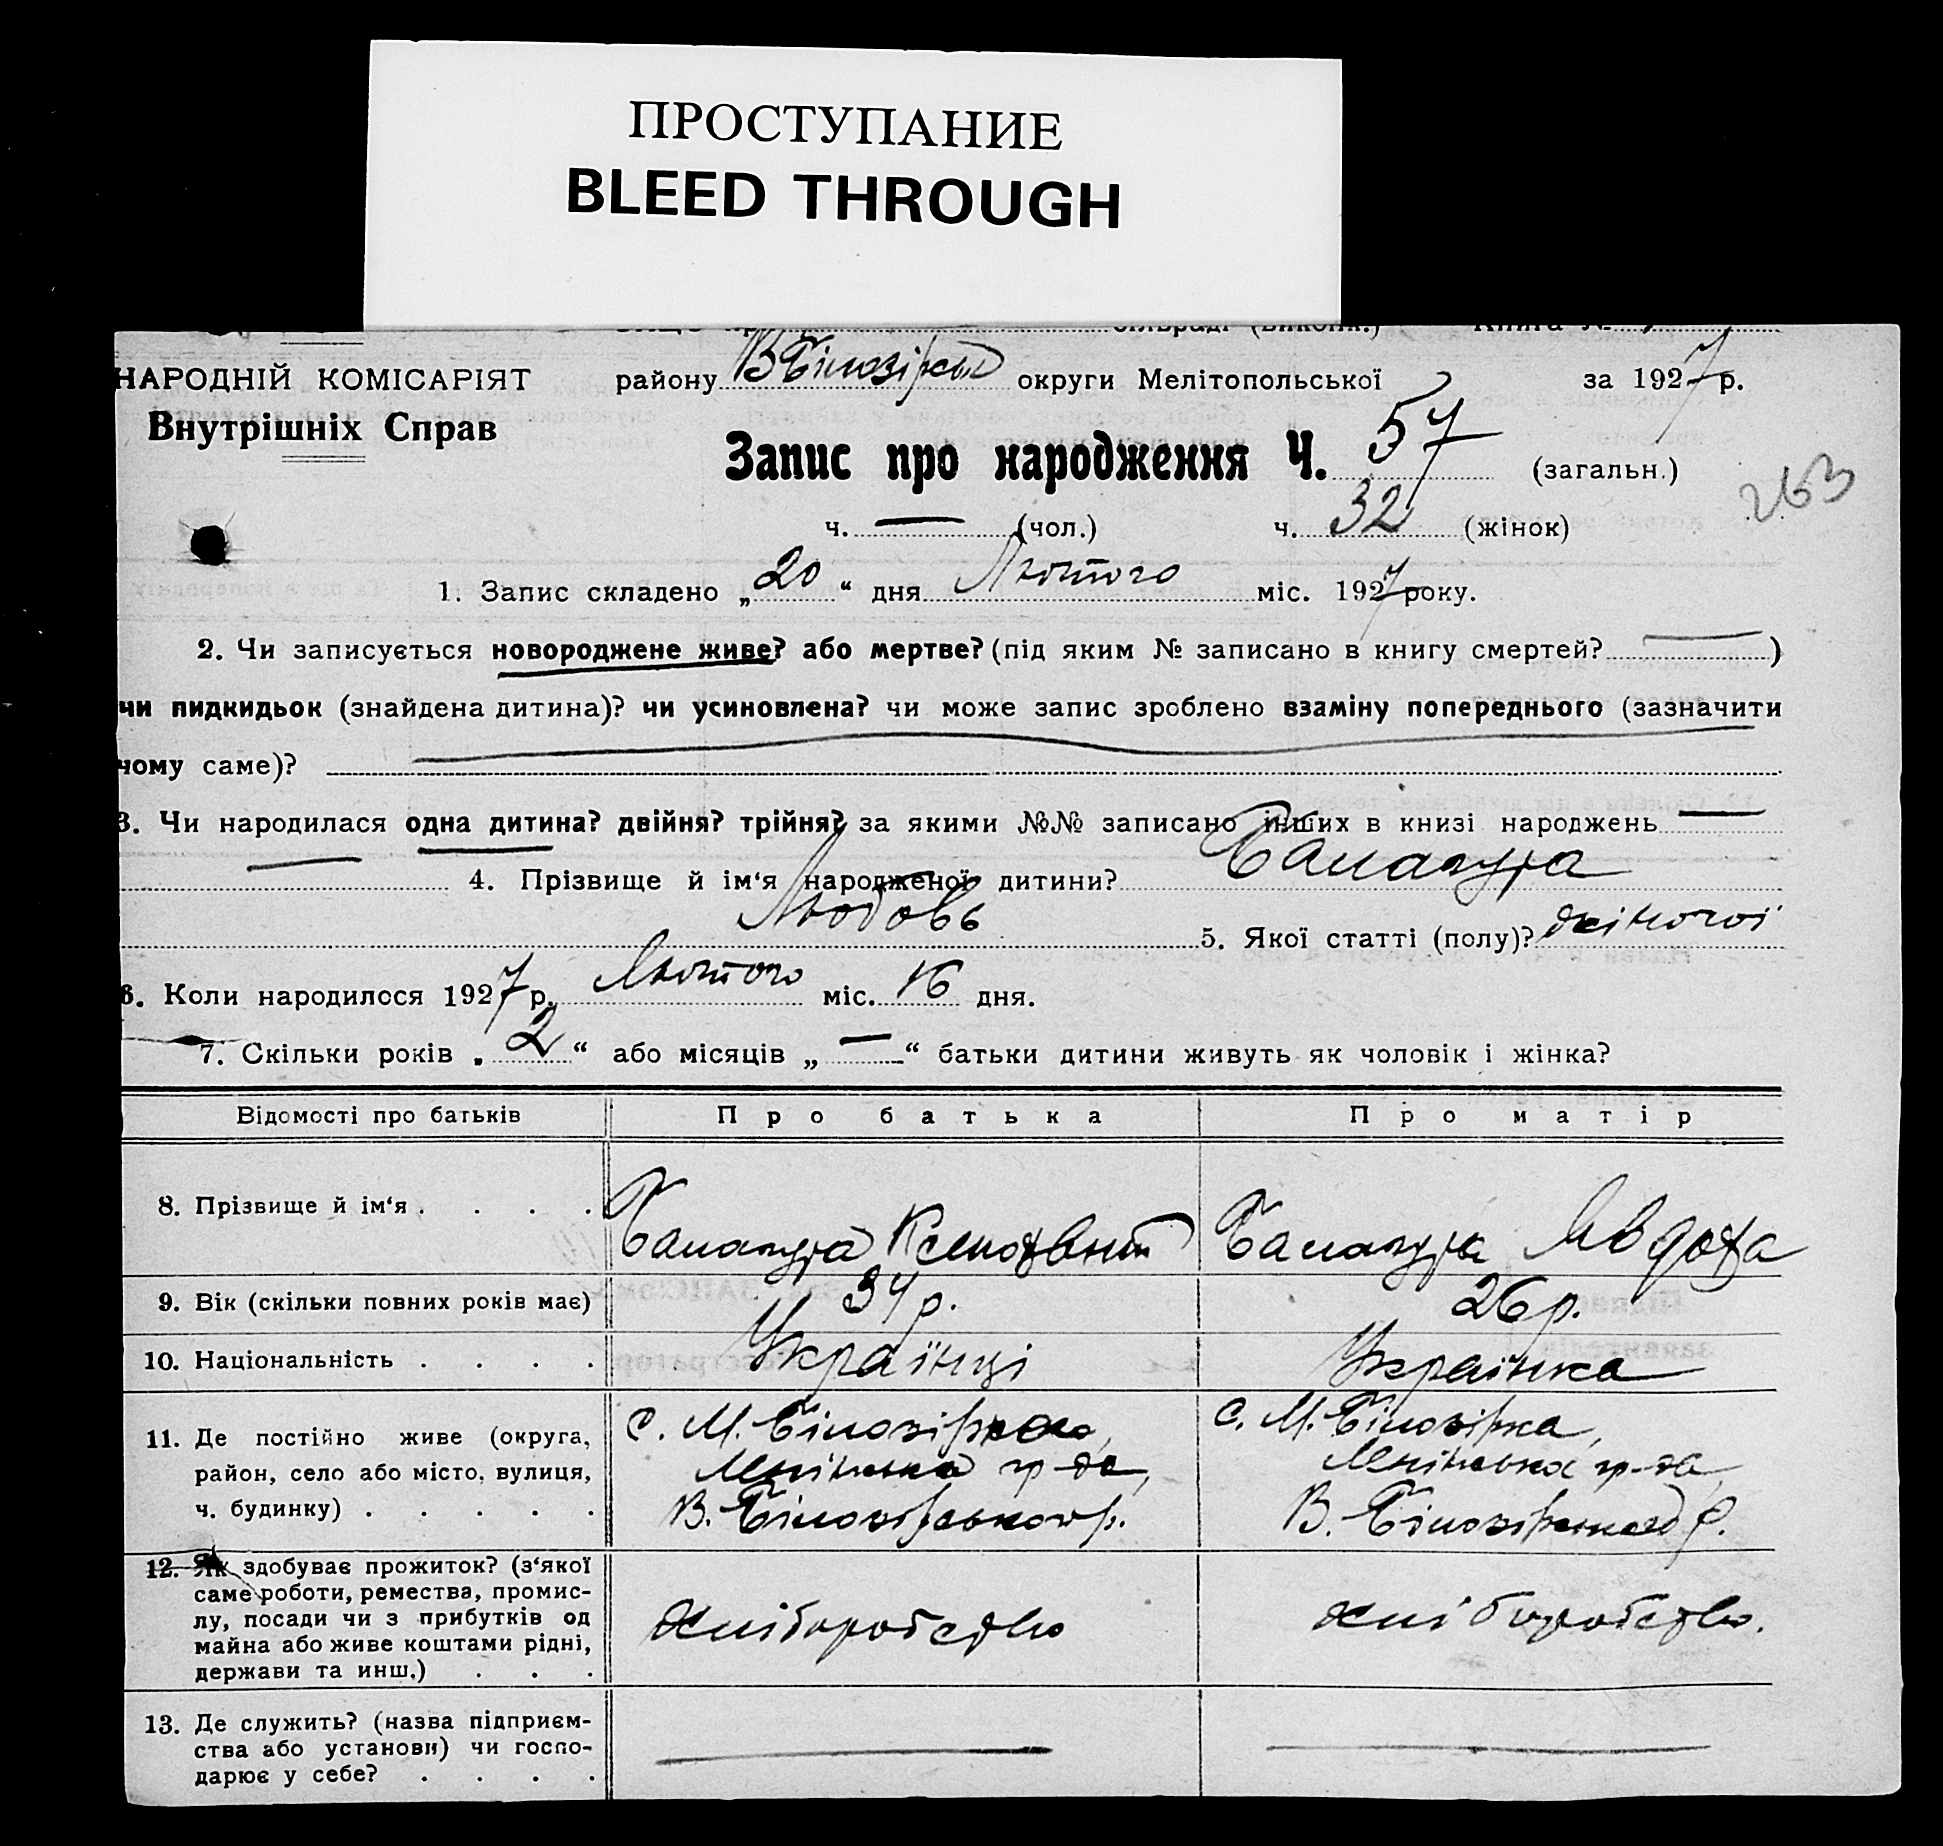 ПРОСТУПАНИЕ
BLEED THROUGH
НАРОДНІЙ КОМІСАРІЯТ
Внутрішніх Справ
району В Білозірськ округи Мелітопольської за 1927 р.
Запис про народження Ч. 57 (загальн.)
263
ч. — (чол.) ч. 32 (жінок)
1. Запис складено „20“ дня Лютого міс. 1927 року.
2. Чи записується новороджене живе? або мертве? (під яким № записано в книгу смертей? — )
чи пидкидьок (знайдена дитина)? чи усиновлена? чи може запис зроблено взаміну попереднього (зазначити
чому саме)?
3. Чи народилася одна дитина? двійня? трійня? за якими №№ записано інших в книзі народжень —
— 4. Прізвище й ім‘я народженої дитини? Балазура
Любовь 5. Якої статті (полу)? жіночої
6. Коли народилося 1927 р. Лютого міс. 16 дня.
7. Скільки років „2“ або місяців „—“ батьки дитини живуть як чоловік і жінка?
Відомості про батьків Про батька Про матір
8. Прізвище й ім‘я . . . . Балазура Ксенофонт Балазура Явдоха
9. Вік (скільки повних років має) 34 р. 26 р.
10. Національність . . . . Українці Українка
11. Де постійно живе (округа, с. М. Білозірка, с. М. Білозірка,
район, село або місто, вулиця, Ленінська гр-да, Ленінська гр-да,
ч. будинку) . . . . . В. Білозірського р. В. Білозірського р.
12. Як здобуває прожиток? (з‘якої
саме роботи, ремества, промис-
лу, посади чи з прибутків од хліборобство хліборобство.
майна або живе коштами рідні,
держави та инш.) . . .
13. Де служить? (назва підприєм-
ства або установи) чи госпо- — —
дарює у себе? . . . .